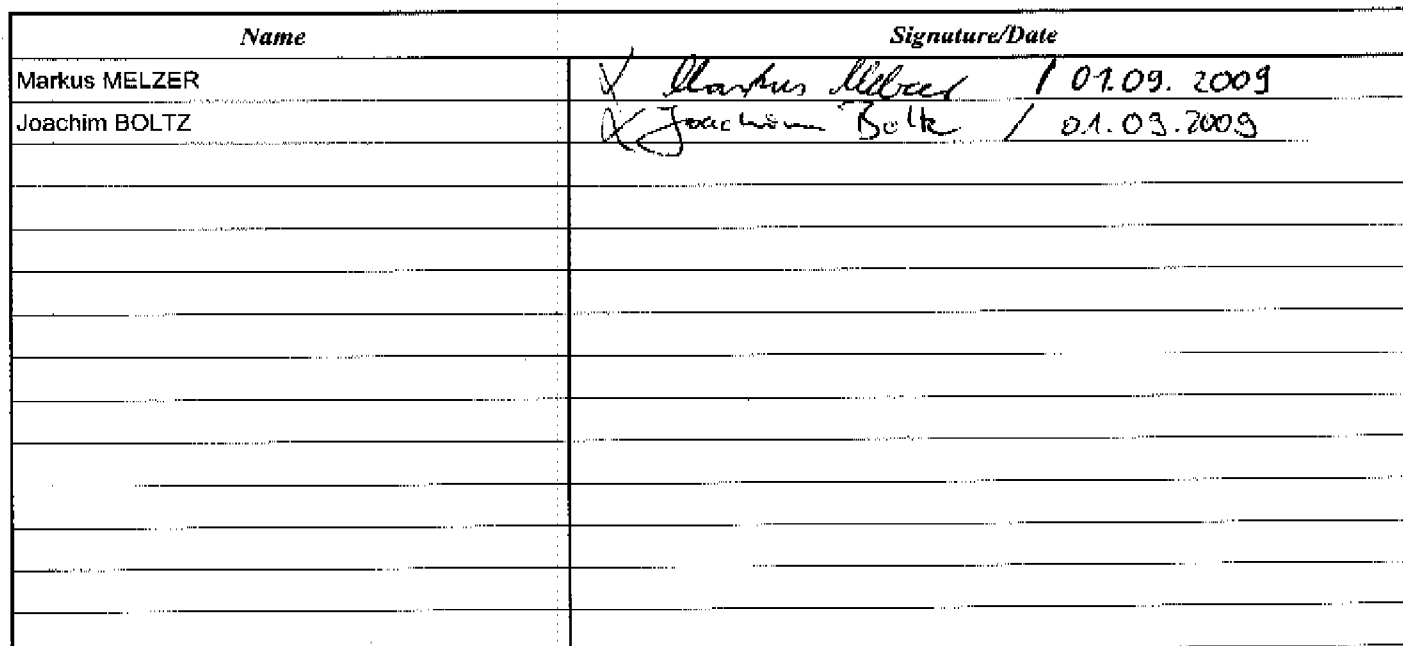 Name Signature/Date
Markus MELZER X Markus Melzer / 01.09.2009
Joachim BOLTZ X Joachim Boltz / 01.09.2009